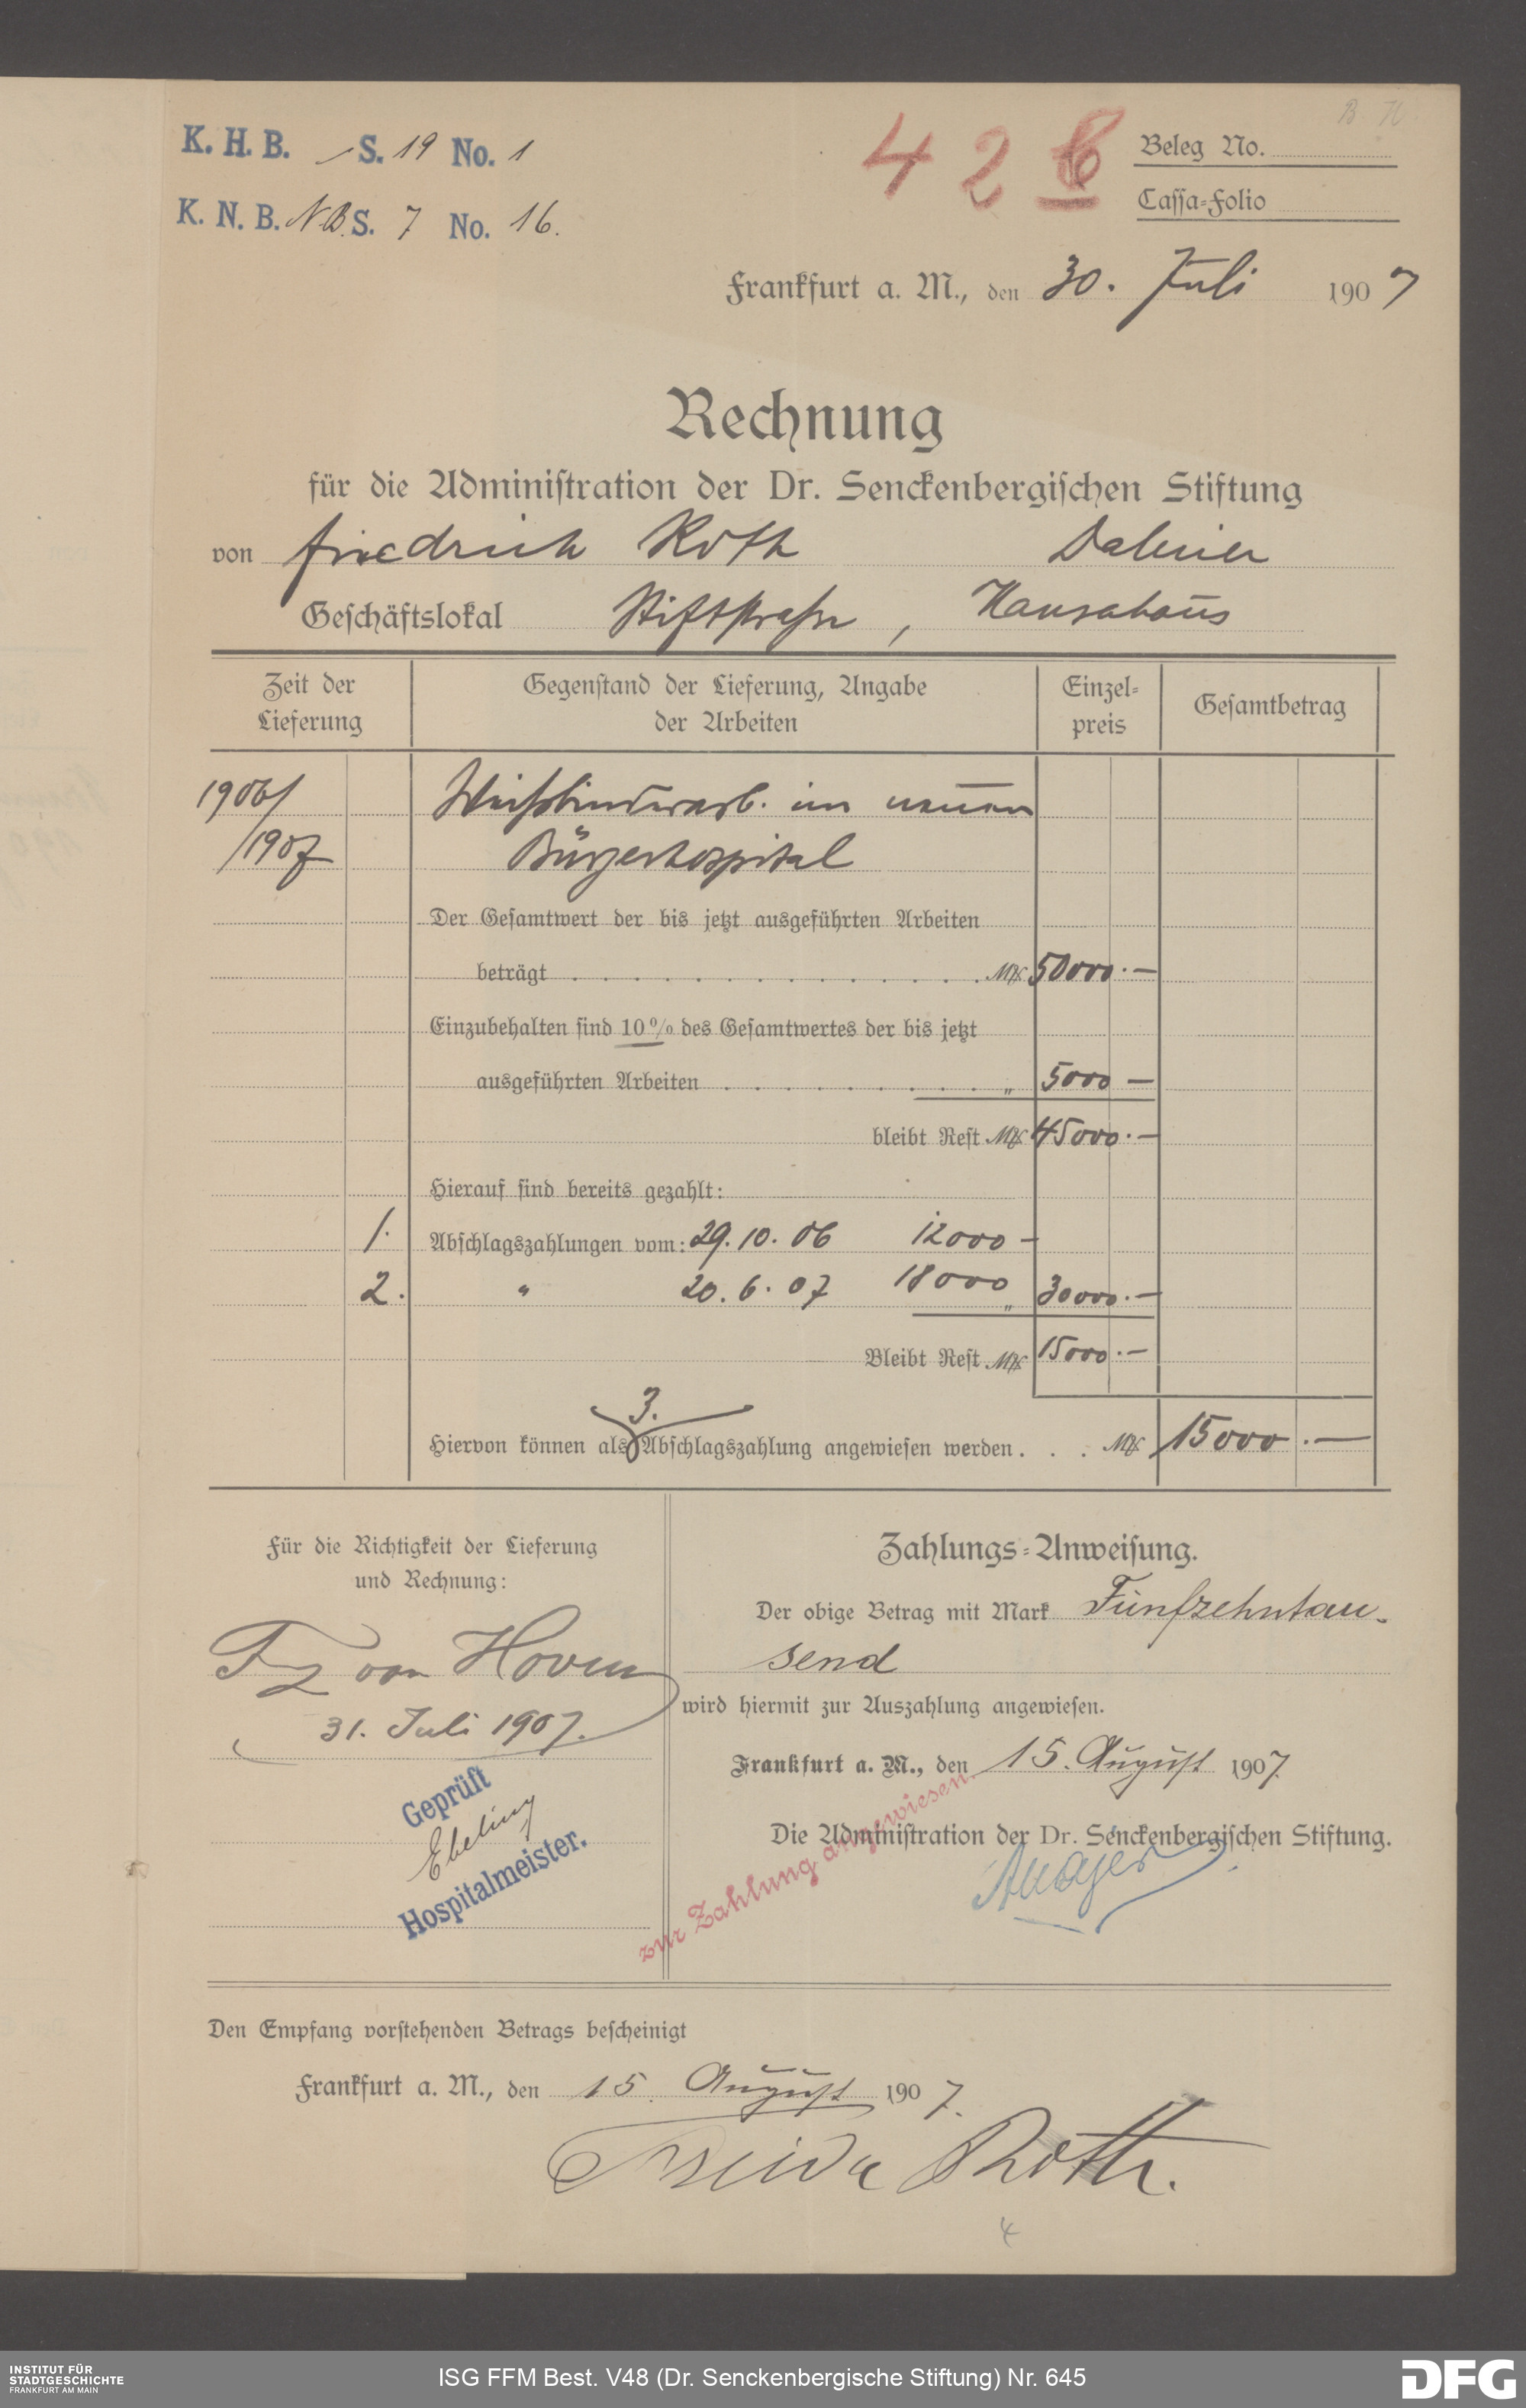 B H
K. H. B. S. 19 No. 1
428
Beleg No.
K. N. B. N.B. S. 7 No. 16.
Caſſa-Folio
Frankfurt a. M., den 30. Juli 1907
Rechnung
für die Adminiſtration der Dr. Senckenbergiſchen Stiftung
von Friedrich Roth
Geſchäftslokal Stiftſtraße, Hansahaus
Zeit der Lieferung
Gegenſtand der Lieferung, Angabe der Arbeiten
Einzel-preis
Geſamtbetrag
1906/ Weißbinderarb. im neuen
/1907 Bürgerhospital
Der Geſamtwert der bis jetzt ausgeführten Arbeiten
beträgt . . . . . . . . . . . . . . Mk 50000.—
Einzubehalten ſind 10% des Geſamtwertes der bis jetzt
ausgeführten Arbeiten . . . . . . . . . „ 5000 —
bleibt Reſt Mk 45000.—
Hierauf ſind bereits gezahlt:
1. Abſchlagszahlungen vom: 29. 10. 06 12000 —
2. " 20. 6. 07 18000 „ 30000.—
Bleibt Reſt Mk 15000.—
3.
Hiervon können als Abſchlagszahlung angewieſen werden . . . Mk 15000.—
Für die Richtigkeit der Lieferung
und Rechnung:
Fz von Hoven
31. Juli 1907.
Geprüft
Ebeling
Hospitalmeister.
Zahlungs-Anweiſung.
Der obige Betrag mit Mark Fünfzehntau-
send
wird hiermit zur Auszahlung angewieſen.
Frankfurt a. M., den 15. Auguſt 1907.
zur Zahlung angewiesen.
Die Adminiſtration der Dr. Senckenbergiſchen Stiftung.
Den Empfang vorſtehenden Betrags beſcheinigt
Frankfurt a. M., den 15. Auguſt 1907.
Roth.
4
INSTITUT FÜR
STADTGESCHICHTE
FRANKFURT AM MAIN
ISG FFM Best. V48 (Dr. Senckenbergische Stiftung) Nr. 645
DFG